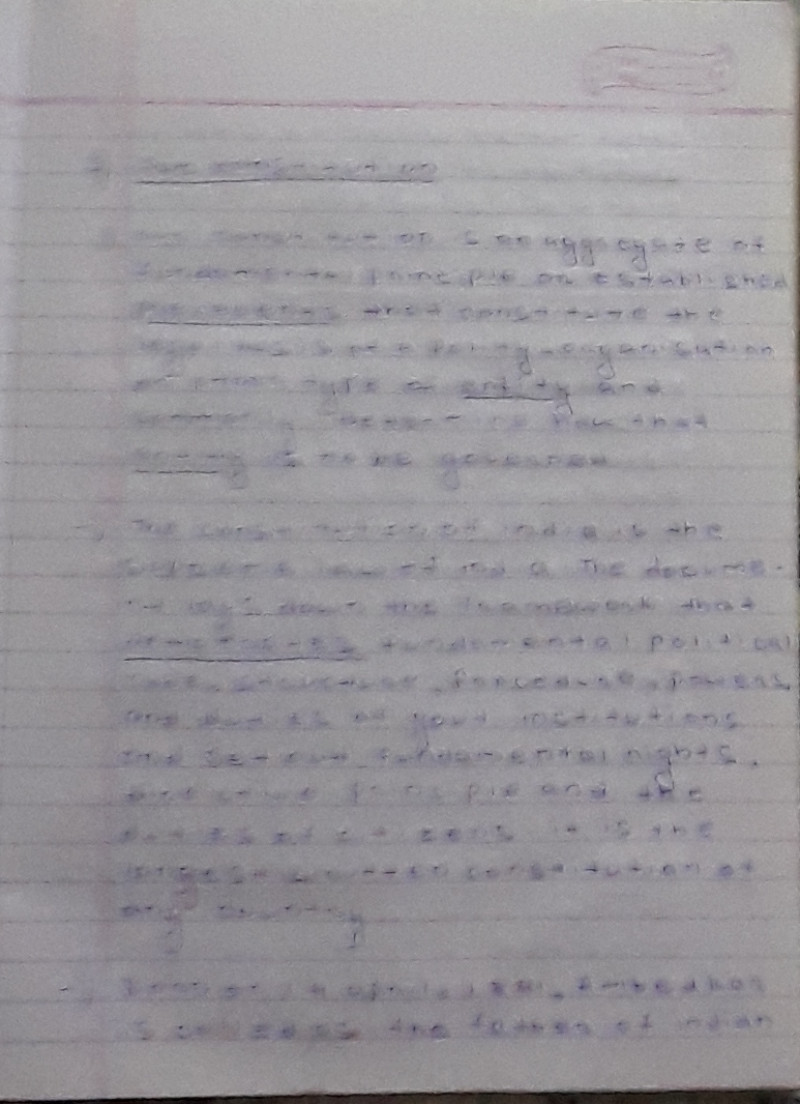 constitution
constitution is an aggregate of
fundamental principle or established
that constitute the
legal basis of a polity, organisation
or other type of entity and
commonly determine how that
entity is to be governed
The constitution of India is the
supreme law of India The docume-
nt lays down the framework that
fundamental political
code, structure, procedure, powers
and duties of govt institutions
and set out fundamental rights,
directive principle and the
duties of citizens. it is the
longest written constitution of
any country
Ambedkar
is the father of indian